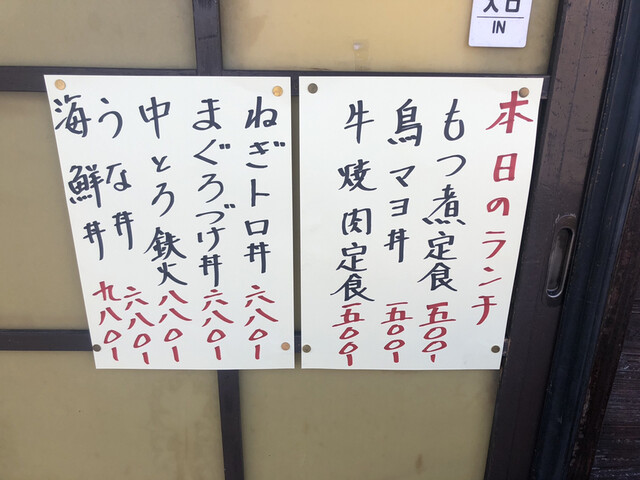 入口
IN
本日のランチ
もつ煮定食 五〇〇ー
鳥マヨ丼 五〇〇ー
牛焼肉定食 五〇〇ー
ねぎトロ丼 六八〇ー
まぐろづけ丼 六八〇ー
中とろ鉄火 八八〇ー
うな丼 六八〇ー
海鮮丼 九八〇ー